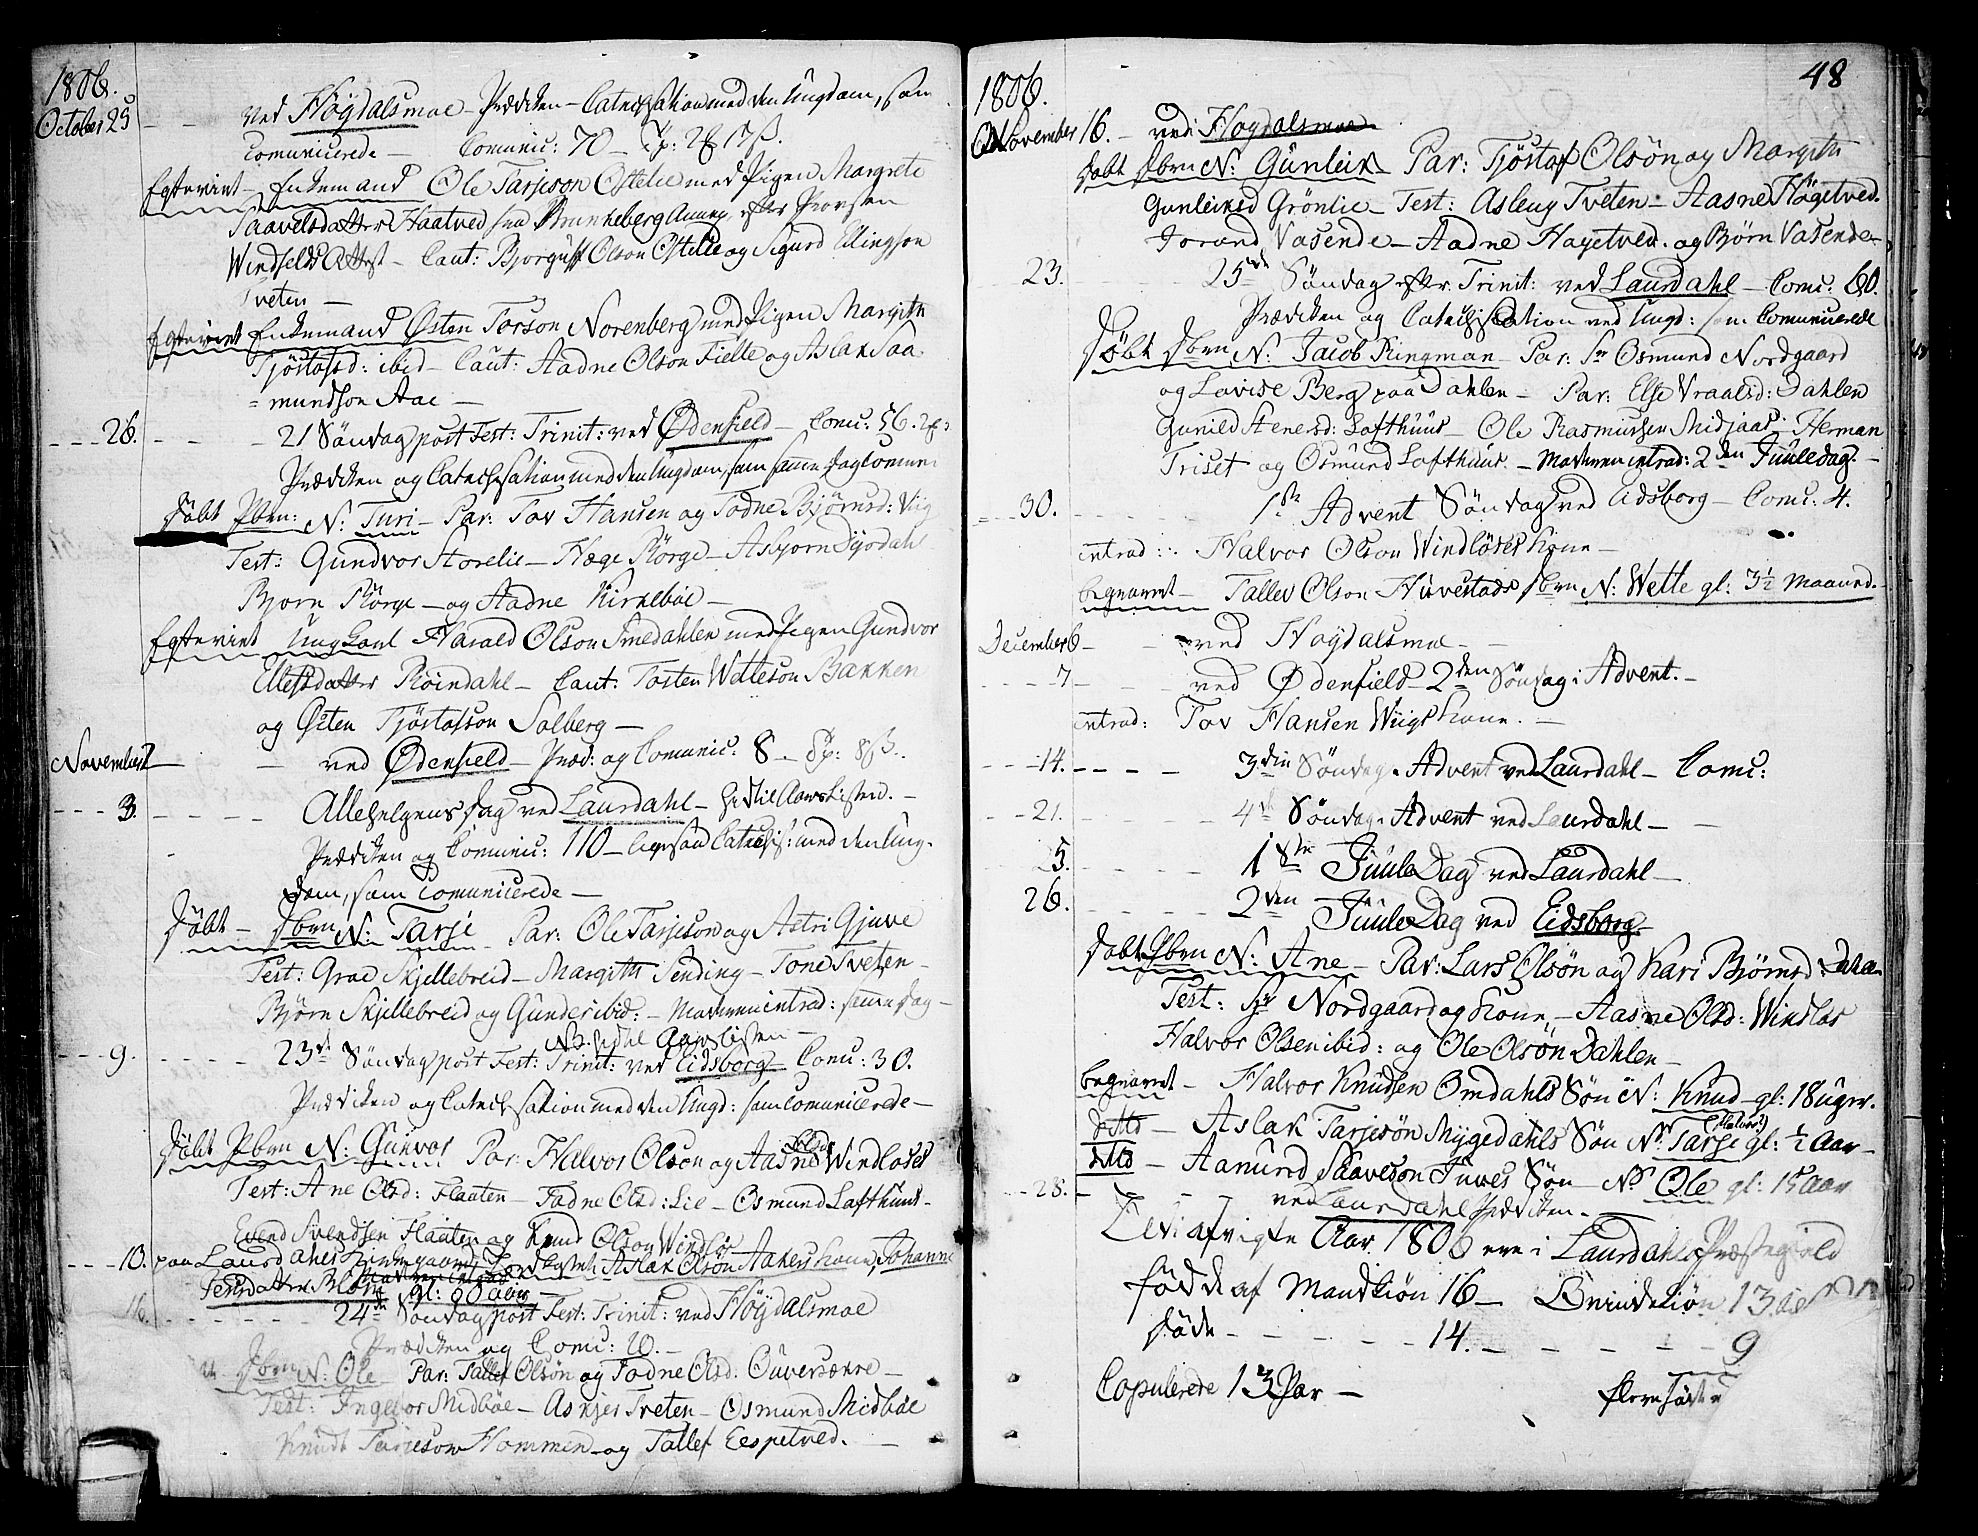 1806.
October 25 — ved Høÿdalsmoe — Prædiken — Catechisation med den Ungdom, som
Comunicerede — Comunic: 70 —
Egteviet — Enkemand Ole Tarjeson Oftelie med Pigen Margrete
Saavelsdatter Haatved fra Brunkeberg Annex, efter Provsten
Windfelds Attest — Caut: Bjorguff Olson Oftelie og Sigurd Ellingson
Tveten —
Egteviet Enkemand Østen Torson Norenberg med Pigen Margith
Tjöstofsd: ibid — Caut: Aadne Olson Fielle og Aslak Saa-
=mundson Aae —
26. 21 Söndag post Fest: Trinit: ved Ødenfield — Comu: 56.
Prædiken og Catechisation med den Ungdom, som samme Dag Comuni
Döbt Pbrn: N: Turi — Par: Tov Hansen og Todne Bjørnsd: Viig
Test: Gundvor Storelie — Hæge Rörge — Asbjorn
Bjorn Rörge — og Aadne Kirkeböe —
Egteviet Ung Karl Harald Olson Smedahlen med Pigen Gundvor
Ellefsdatter Röindahl — Caut: Tosten Wetleson Bakken
og Østen Tjöstofson Solberg —
November 2 — ved Ødenfield — Præd: og Comunic: 8 —
3. Allehelgens Dag ved Laurdahl —
Prædiken og Comunic: 110 — ligesaa Catechis: med den Ung-
dom, som Comunicerede —
Döbt — Dbrn N: Tarje — Par: Ole Tarjeson og Astri Gjuve
Test: Groe Skjellebreid — Margith Sending — Tone Tveten —
Björn Skjellebreid og Gunder ibid: — Moderen introd: samme Dag —
9. 23de Söndag post Fest: Trinit: ved Eidsborg — Comu: 30.
Prædiken og Catechisation med den Ungd: som Comunicerede —
Döbt Pbrn N: Gunvor Par: Halvor Olson og Aasne Olsd: Windloses
Test: Ane Olsd: Flaaten — Todne Olsd: Lie — Osmund Lofthuus —
Evend Svendsen Flaaten og Knud Olson Windlös
10. paa Laurdahls Kirkegaard Aslak Olsön Aakers Kone, Johanne
gl: 60 aar —
16. 24de Söndag post Fest: Trinit: ved Höÿdalsmoe
Prædiken og Comu: 20. —
Dbrn N: Ole Par: Tallef Olsön og Todne Olsd: Ouversakre —
Test: Ingebor Midböe — Askjer Tveten — Osmund Midböe
Knudt Tarjeson Hommen og Tallef Eespetved. —
48
1806.
November 16. — ved Hoydalsmoe
Döbt Dbrn N: Gunleik Par: Tjöstof Olsön og Margith
Gunleiksd Grönlie — Test: Aslaug Tveten — Aasne Högetved.
Jorand Vasende — Aadne Hagetved. og Björn Vasende —
23. 25de Söndag efter Trinit: ved Laurdahl — Comu: 60.
Prædiken og Catechisation ved Ungd: som Comunicerede
Döbt Dbrn N: Jacob Ringman — Par: Sr Osmund Nordgaard
og Lovise Berg paa Dahlen — Par: Else Vraalsd: Dahlen
Gunild Stenersd: Lofthuus — Ole Rasmussen Midjaas — Herman
Triset og Osmund Lofthuus. — Moderen introd: 2den Juuledag. —
30. 1ste Advent Söndag ved Eidsborg — Comu: 4.
introd:: Halvor Olson Windlöses Kone —
begravet — Tallev Olson Huvestads Dbrn N: Wetle gl: 3½ Maaned.
December 6 — ved Hoydalsmoe —
7 — ved Ødenfield — 2den Söndag i Advent. —
introd: Tov Hansen Wiigs Kone. —
14. 3die Söndag i Advent ved Laurdahl — Comu:
21. 4de Söndag i Advent ved Laurdahl —
5. 1ste Juule Dag ved Laurdahl —
26. 2den Juule Dag ved Eidsborg.
Döbt Pbrn N: Ane — Par: Lars Olsön og Kari Björnsd
Test: Sr Nordgaard og Kone — Aasne Olsd: Windlös
Halvor Olsen ibid: og Ole Olsön Dahlen —
begravet — Halvor Knudsen Omdahls Sön N: Knud — gl: 18 uger.
ditto — Aslak Tarjesön Mygedahls Sön N: Tarje (Halvor?) gl: ½ Aar —
ditto — Aanund Saaveson Juves Sön N: Ole gl: 15 Aar
28. — ved Laurdahl Prædiken. —
I det afvigte Aar 1806 ere i Laurdahls Præstegield
födde af Mandkiön 16 — Qvindekiön 13
döde — 14. — 9
Copulerede 13 Par — flere födte